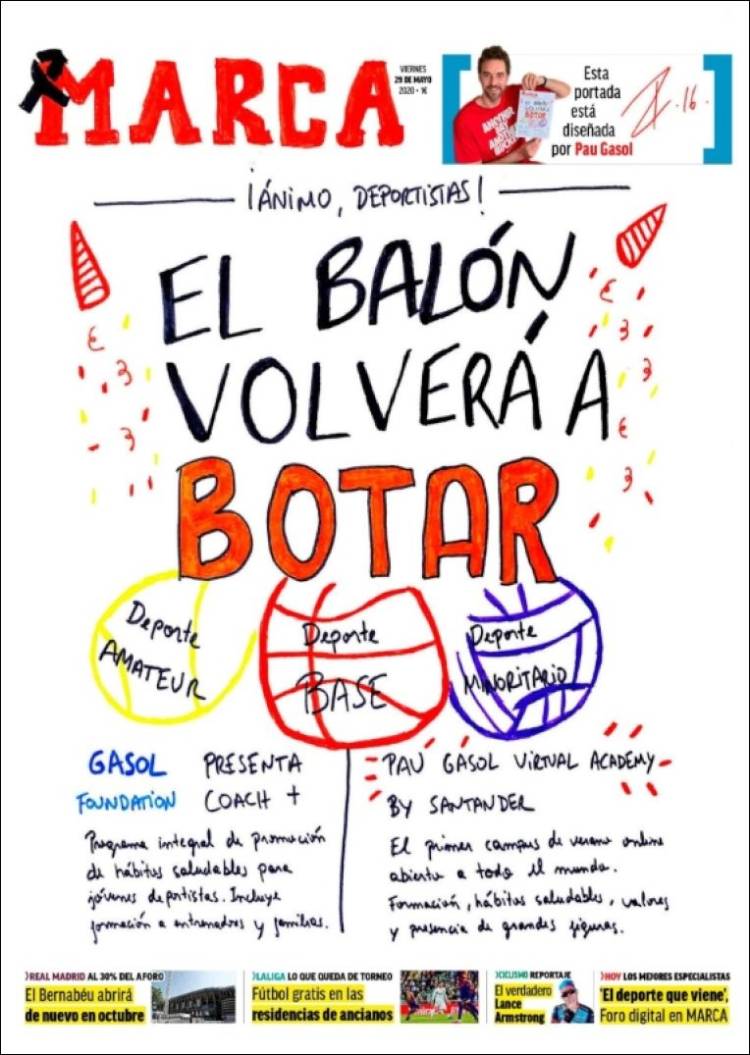 MARCA
VIERNES
29 DE MAYO
2020 • 1€
Esta
portada
está
diseñada
por Pau Gasol
.16.
¡ÁNIMO, DEPORTISTAS!
EL BALÓN
VOLVERÁ A
BOTAR
Deporte
AMATEUR
Deporte
BASE
Deporte
MINORITARIO
GASOL PRESENTA
FOUNDATION COACH +
Programa integral de promoción
de hábitos saludables para
jóvenes deportistas. Incluye
formación a entrenadores y familias.
PAU GASOL VIRTUAL ACADEMY
BY SANTANDER
El primer campus de verano online
abierto a todo el mundo.
Formación, hábitos saludables, valores
y presencia de grandes figuras.
REAL MADRID AL 30% DEL AFORO
El Bernabéu abrirá
de nuevo en octubre
LALIGA LO QUE QUEDA DE TORNEO
Fútbol gratis en las
residencias de ancianos
CICLISMO REPORTAJE
El verdadero
Lance
Armstrong
HOY LOS MEJORES ESPECIALISTAS
'El deporte que viene',
Foro digital en MARCA